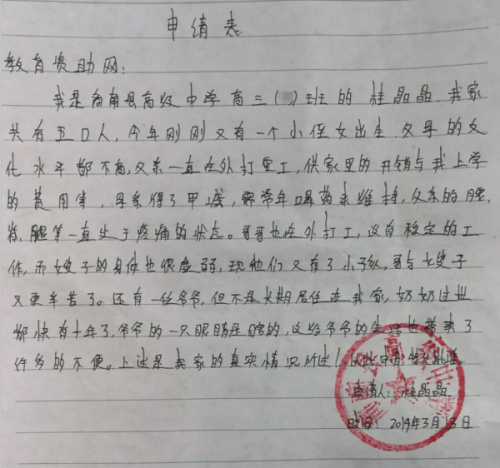 申请表
教育资助网:
我是商南县高级中学高三( )班的桂晶晶.我家
共有五口人,今年刚刚又有一个小侄女出生.父母的文
化水平都不高,父亲一直在外打重工,供家里的开销与我上学
的费用等,母亲得了甲线,需常年喝药来维持,父亲的腰,
肩,腿等一直处于疼痛的状态。哥哥也在外打工,没有稳定的工
作,而嫂子的身体也很虚弱,现他们又有了小孩,哥与嫂子
又更辛苦了。还有一位爷爷,但不是长期居住在我家,奶奶过世
都快有十年了,爷爷的一只眼睛是瞎的,这给爷爷的生活也带来了
许多的不便。上述是我家的真实情况所述
申请人:桂晶晶
时间:2019年3月13日